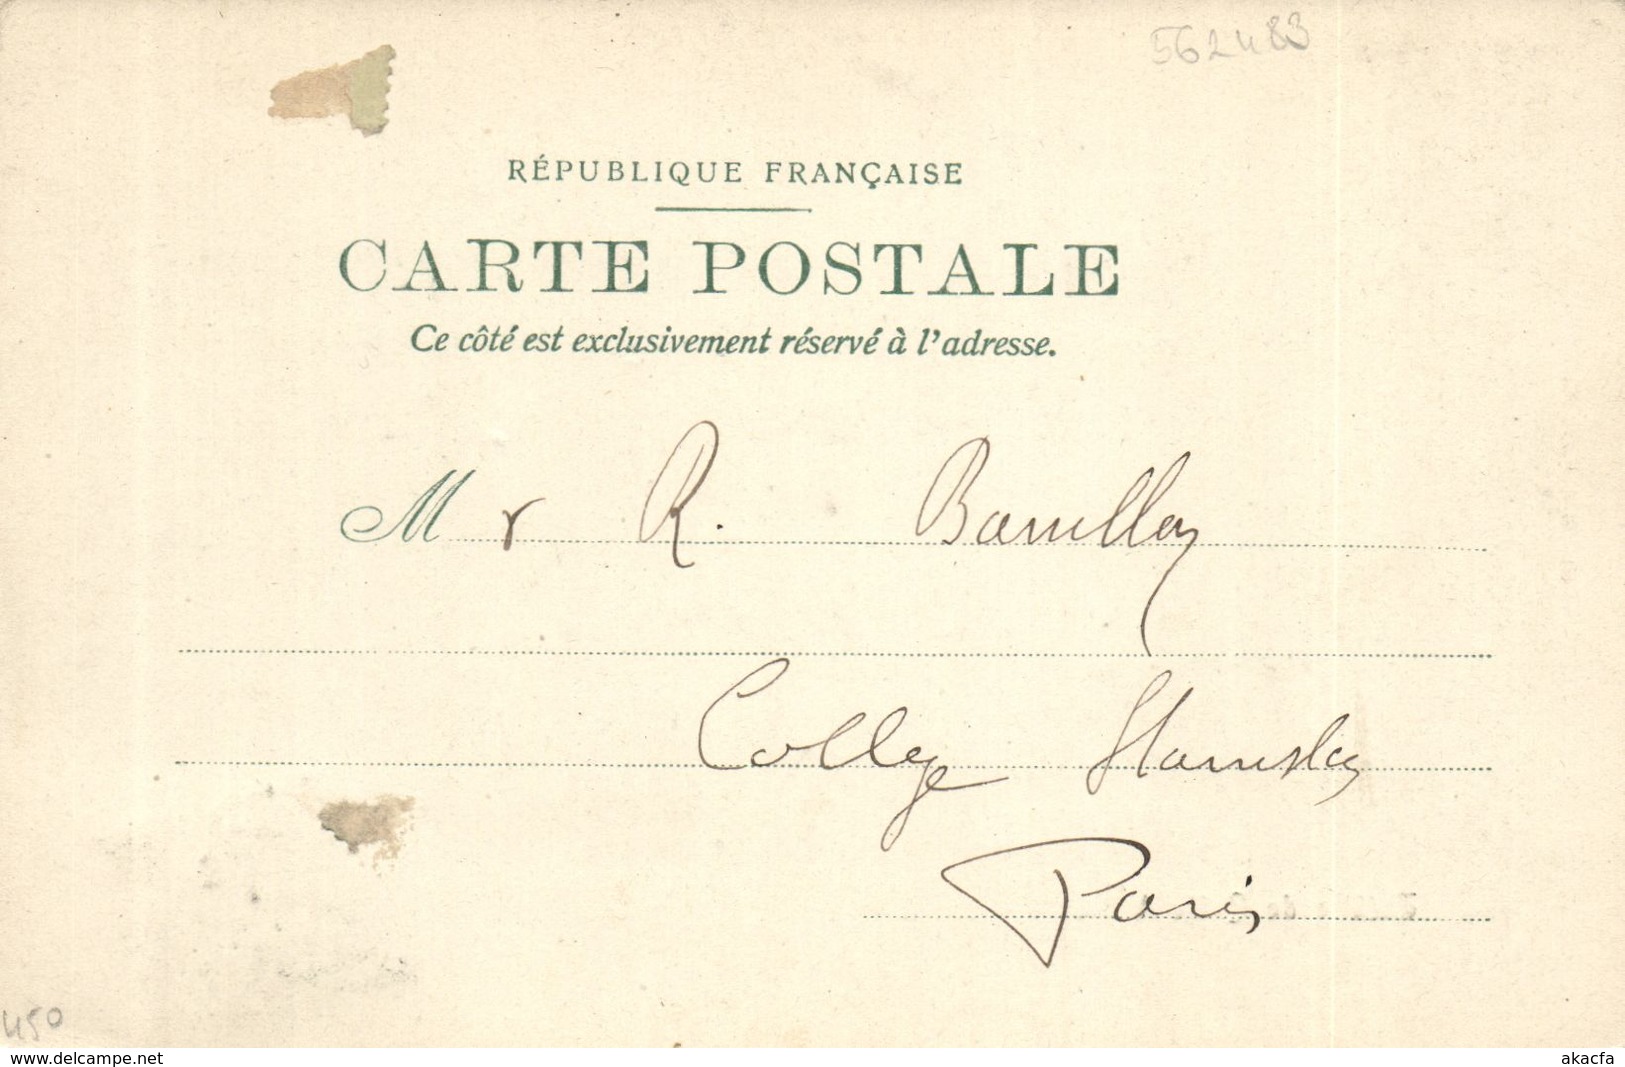 562483
RÉPUBLIQUE FRANÇAISE
CARTE POSTALE
Ce côté est exclusivement réservé à l'adresse.
Mr R.
College Stanislas
Paris
450
www.delcampe.net
akacfa